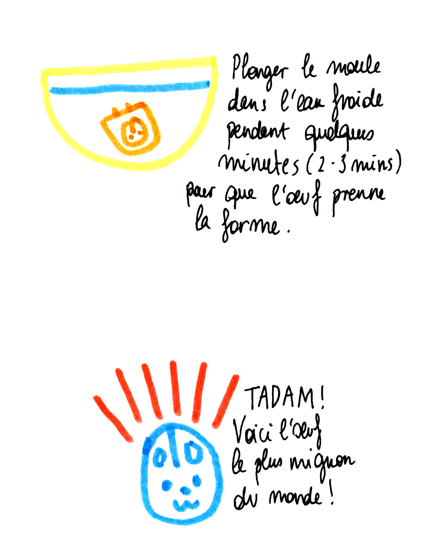 Plonger le moule
dans l'eau froide
pendant quelques
minutes (2-3 mins)
pour que l'œuf prenne
la forme.
TADAM!
Voici l'œuf
le plus mignon
du monde!